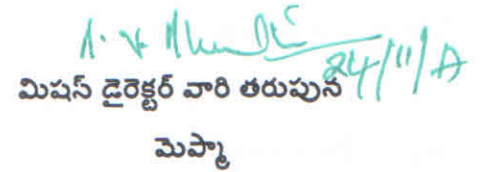 24/11/17
మిషన్ డైరెక్టర్ వారి తరుపున
మెప్మా